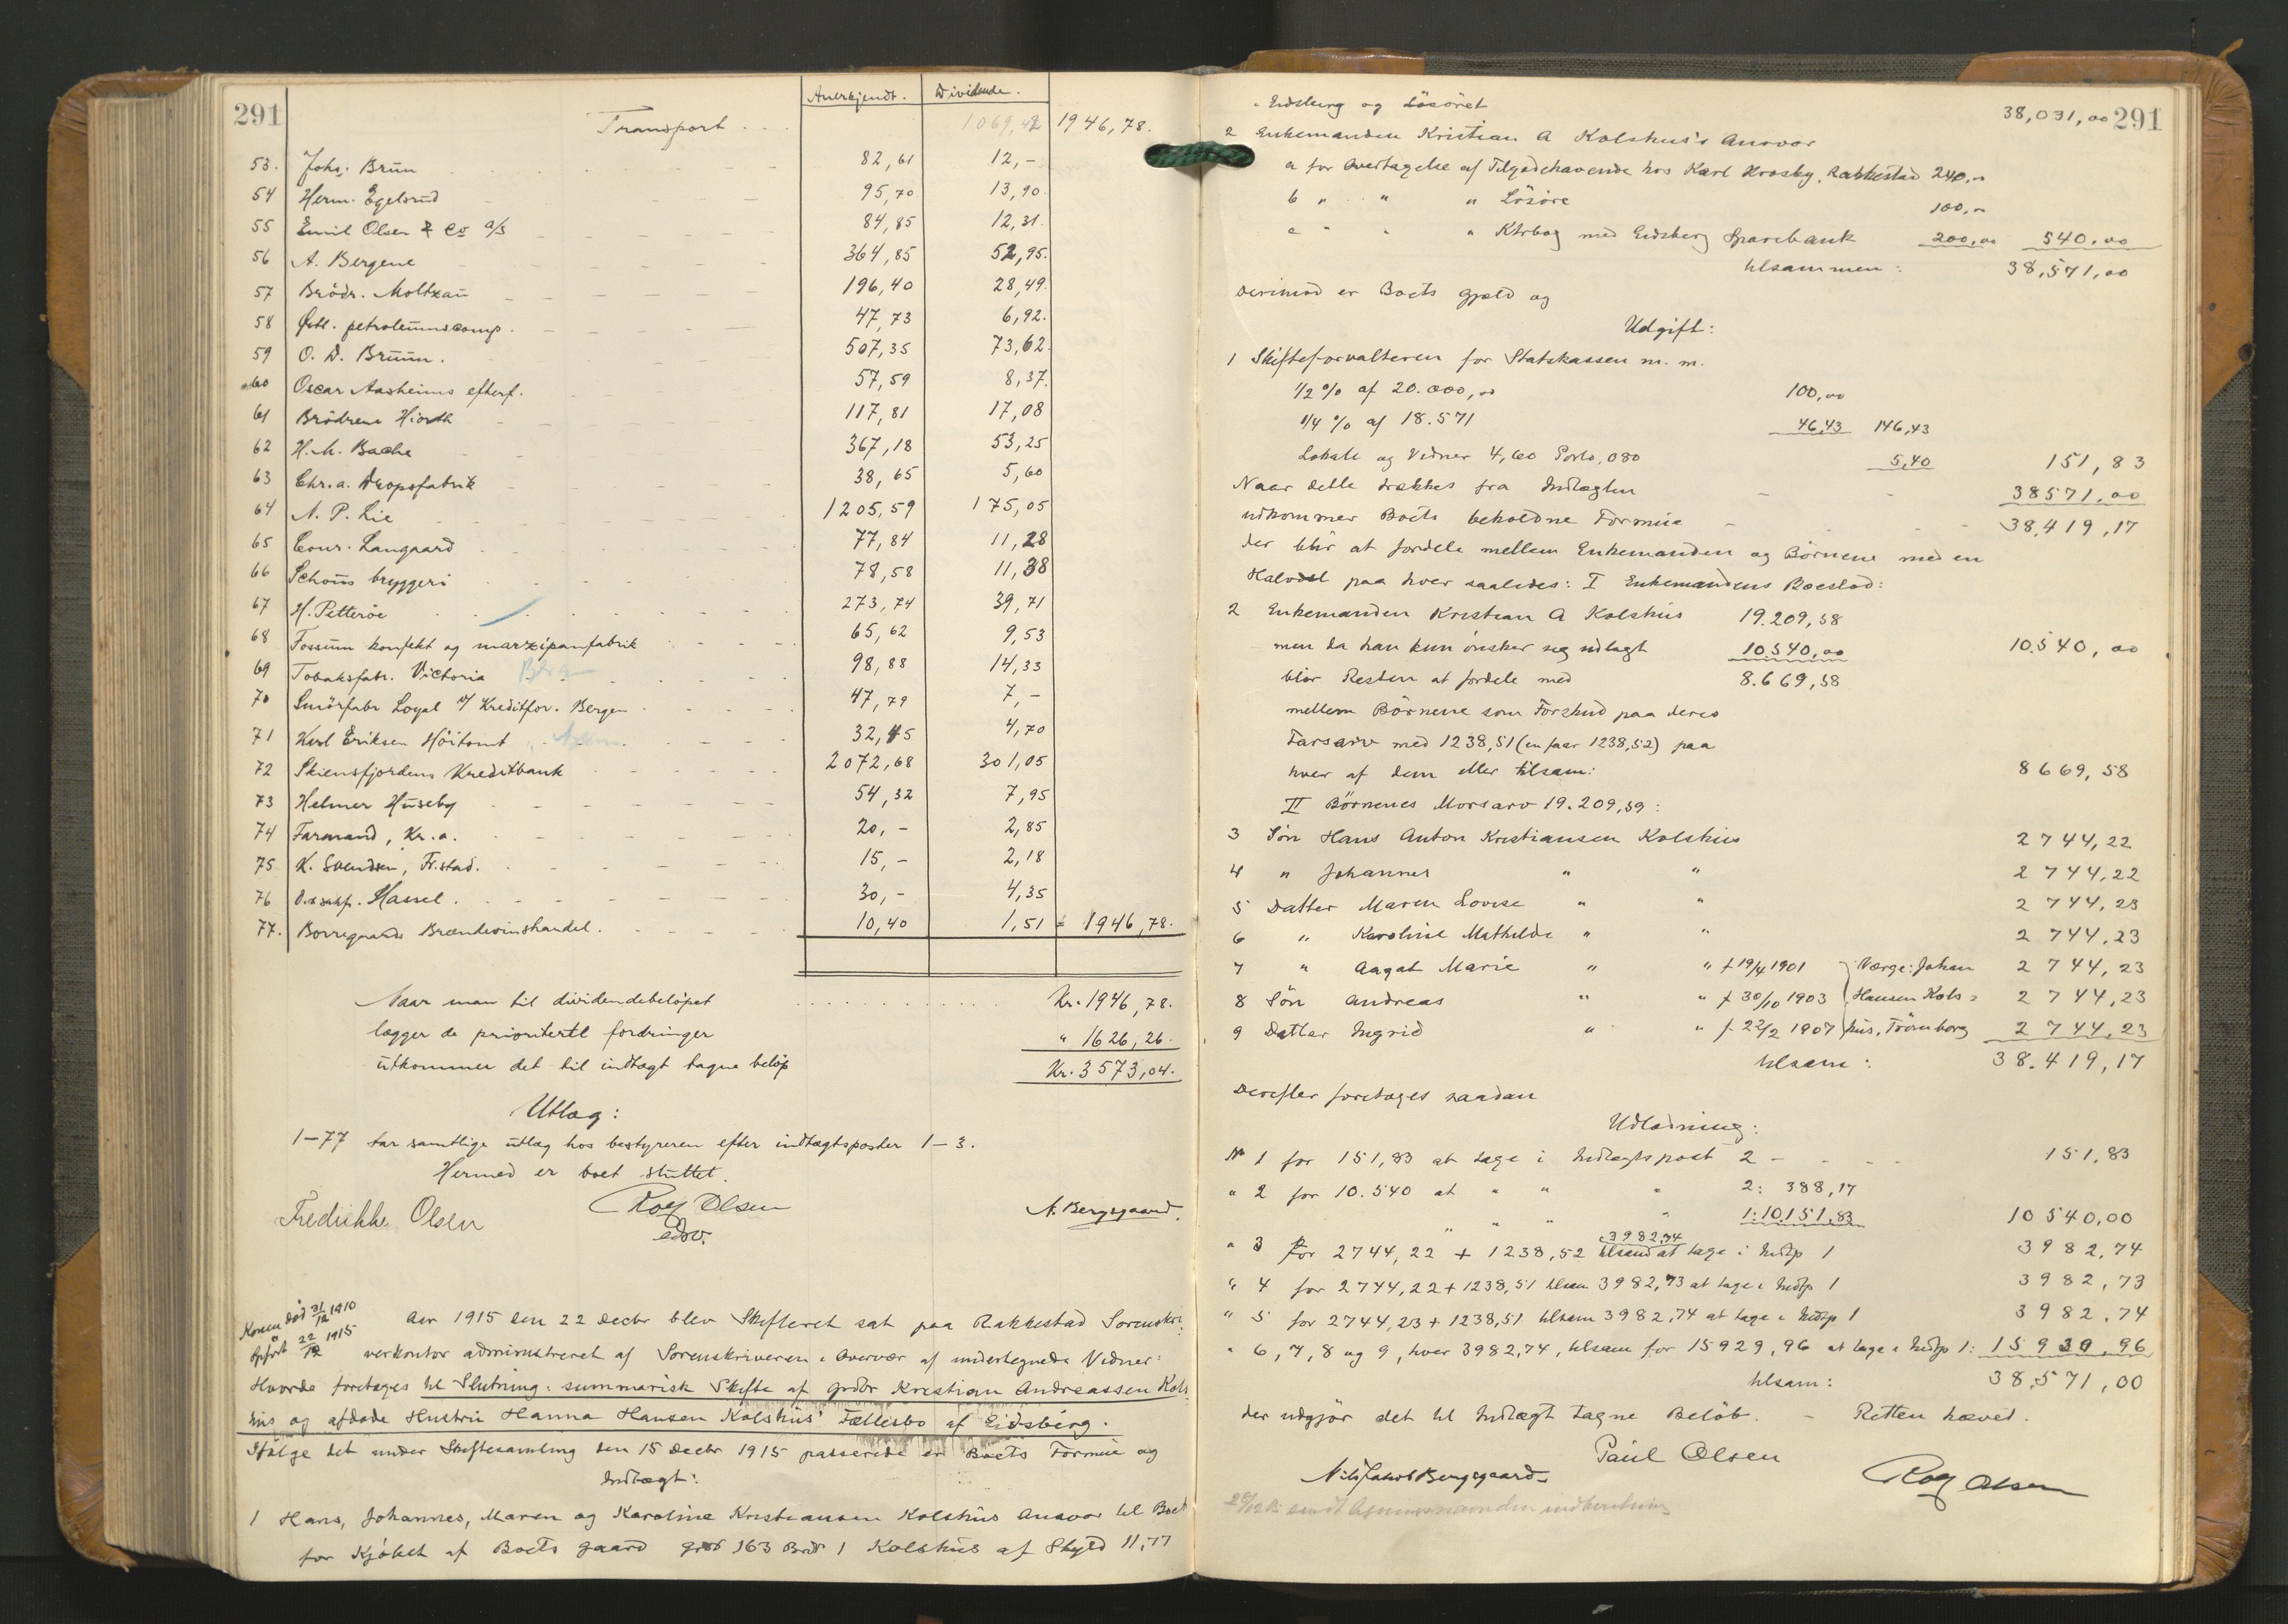 291
Anerkjendt. Dividende.
Transport . . . 1069,42 1946,78.
53. Johs. Brun 82,61 12,-
54 Herm. Egelsrud 95,70 13,90.
55 Emil Olsen & Co a/s 84,85 12,31.
56 A. Bergene 364,85 52,95.
57 Brödr. Moltzau 196,40 28,49.
58 Östl. petroleumscomp. 47,73 6,92.
59 O. D. Bruun. 507,35 73,62.
60 Oscar Aasheims efterf. 57,59 8,37.
61 Brödrene Hiorth 117,81 17,08
62 H. M. Bache 367,18 53,25
63 Chr.a. Dropsfabrik 38,65 5,60
64 N. P. Lie 1205,59 175,05
65 Conr. Langaard 77,84 11,28
66 Schous bryggeri 78,58 11,38
67 H. Petterøe 273,74 39,71
68 Fossum konfekt og marzipanfabrik 65,62 9,53
69 Tobaksfabr. Victoria 98,88 14,33
70 Smörfabr Loyal v/ Kreditfor. Bergen 47,79 7,-
71 Karl Eriksen Höitomt 32,45 4,70
72 Skiensfjordens Kreditbank 2072,68 301,05
73 Helmer Huseby 54,32 7,95
74 Farmand, Kr.a. 20,- 2,85
75 K. Svendsen, Fr.stad. 15,- 2,18
76 Hassel. 30,- 4,35
77. Borregaards Brændevinshandel. 10,40 1,51 = 1946,78.
Naar man til dividendebelöpet Kr. 1946,78.
lægger de prioriterte fordringer " 1626,26.
utkommer det til indtægt tagne belöp Kr. 3573,04.
Utlæg:
1-77 tar samtlige utlæg hos bestyreren efter indtægtsposter 1-3.
Hermed er boet sluttet.
Fredrikke Olsen Rolf Olsen A. Bergsgaard.
edsv.
Konen död 31/12 1910
Opført 22/12 1915
Aar 1915 den 22 Decbr blev Skifteret sat paa Rakkestad Sorenskri-
verkontor administreret af Sorenskriveren i Overvær af undertegnede Vidner:
Hvorda foretoges til Slutning: summarisk Skifte af Grdbr Kristian Andreassen Kols-
hus og afdøde Hustru Hanna Hansen Kolshus' Fællesbo af Eidsberg.
Ifølge det under Skiftesamling den 15 Decbr 1915 passerede er Boets Formue og
Indtægt:
1 Hans, Johannes, Maren og Karoline Kristiansen Kolshus Ansvar til Boet
for Kjöbet af Boets Gaard Grd 163 Brd 1 Kolshus af Skyld 11,77
i Eidsberg og Lösöret 38,031,00
291
2 Enkemanden Kristian A Kolshus's Ansvar
a for Overtagelse af Tilgodehavende hos Karl Krosby, Rakkestad 240,00
b " " " Lösöre 100,00
c " " " Ktrbog med Eidsberg Sparebank 200,00 540,00
tilsammen: 38,571,00
Derimod er Boets Gjæld og
Udgift:
1 Skifteforvalteren for Statskassen m. m.
1/2 % af 20.000,00 100,00
1/4 % af 18.571 46,43 146,43
Lokale og Vidner 4,60 Porto, 080 5,40 151,83
Naar dette trækkes fra Indtægten 38571,00
udkommer Boets beholdne Formue 38,419,17
der blir at fordele mellem Enkemanden og Börnene med en
Halvdel paa hver saaledes: I Enkemandens Boeslod:
2 Enkemanden Kristian A Kolshus 19.209,58
men da han kun önsker sig udlagt 10.540,00 10.540,00
blir Resten at fordele med 8.669,58
mellem Börnene som Forskud paa deres
Farsarv med 1238,51 (en faar 1238,52) paa
hver af dem eller tilsam: 8669,58
II Börnenes Morsarv 19.209,59:
3 Sön Hans Anton Kristiansen Kolshus 2744,22
4 " Johannes " " 2744,22
5 Datter Maren Lovise " " 2744,23
6 " Karoline Mathilde " " 2744,23
7 " Aagat Marie " " f 19/4 1901 Værge: Johan 2744,23
8 Sön Andreas " " f 30/10 1903 Hansen Kols- 2744,23
9 Datter Ingrid " " f 22/2 1907 hus, Trömborg 2744,23
tilsam: 38.419,17
Derefter foretages saadan
Udlodning:
No 1 for 151,83 at tage i Indtægtspost 2 151,83
" 2 for 10.540 at " " " 2: 388,17
" " " " 1: 10.151,83 10540,00
" 3 for 2744,22 + 1238,52 tilsam 3982,74 at tage i Indtp 1 3982,74
" 4 for 2744,22 + 1238,51 tilsam 3982,73 at tage i Indtp 1 3982,73
" 5 for 2744,23 + 1238,51 tilsam 3982,74 at tage i Indtp 1 3982,74
" 6, 7, 8 og 9, hver 3982,74, tilsam for 15929,96 at tage i Indtp 1: 15930,96
tilsam: 38,571,00
der udgjör det til Indtægt tagne Belöb. - Retten hævet.
Paul Olsen
Nils Jakob Bergsgaard. Rolf Olsen